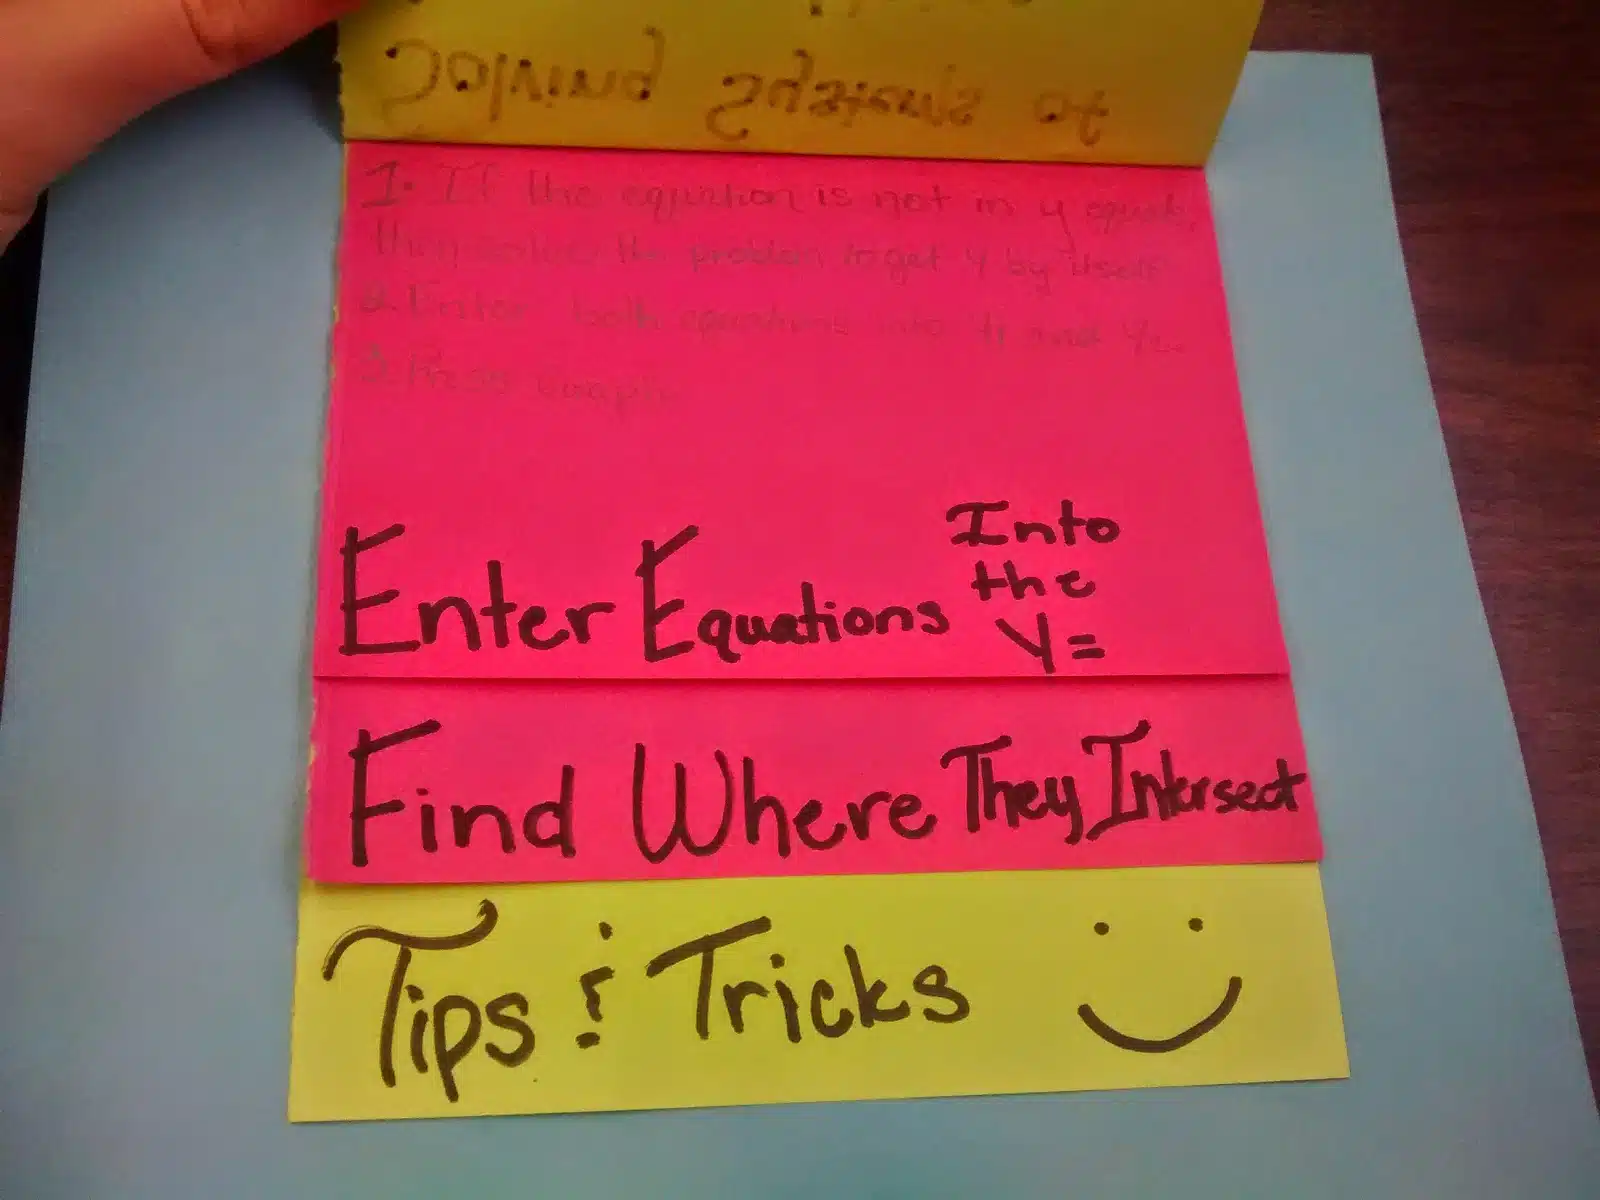 Solving Systems of
1. If the equation is not in y equals,
then solve the problem to get y by itself
2. Enter both equations into Y1 and Y2.
3. Press Graph
Enter Equations Into the Y=
Find Where They Intersect
Tips & Tricks